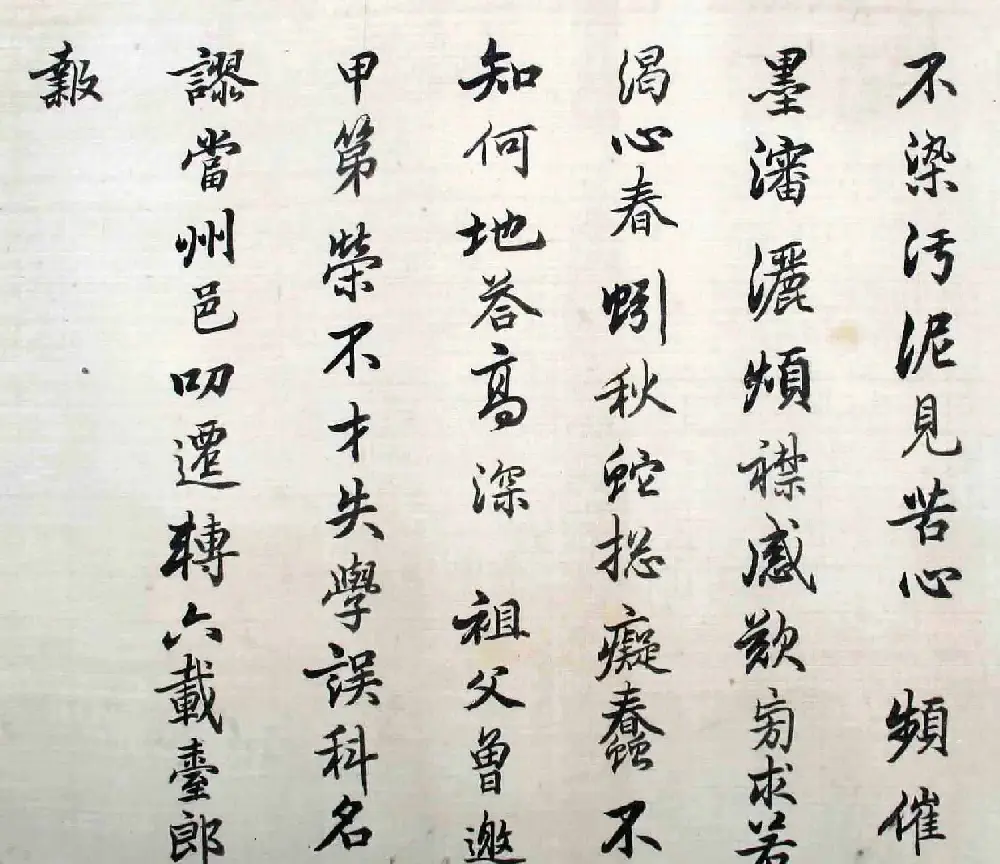 不染污泥見苦心 頻催
墨瀋灑煩襟感歎旁求若
渴心春蚓秋蛇摠癡蠢不
知何地荅高深 祖父曾邀
甲第榮不才失學誤科名
謬當州邑叨遷轉六載臺郎
報